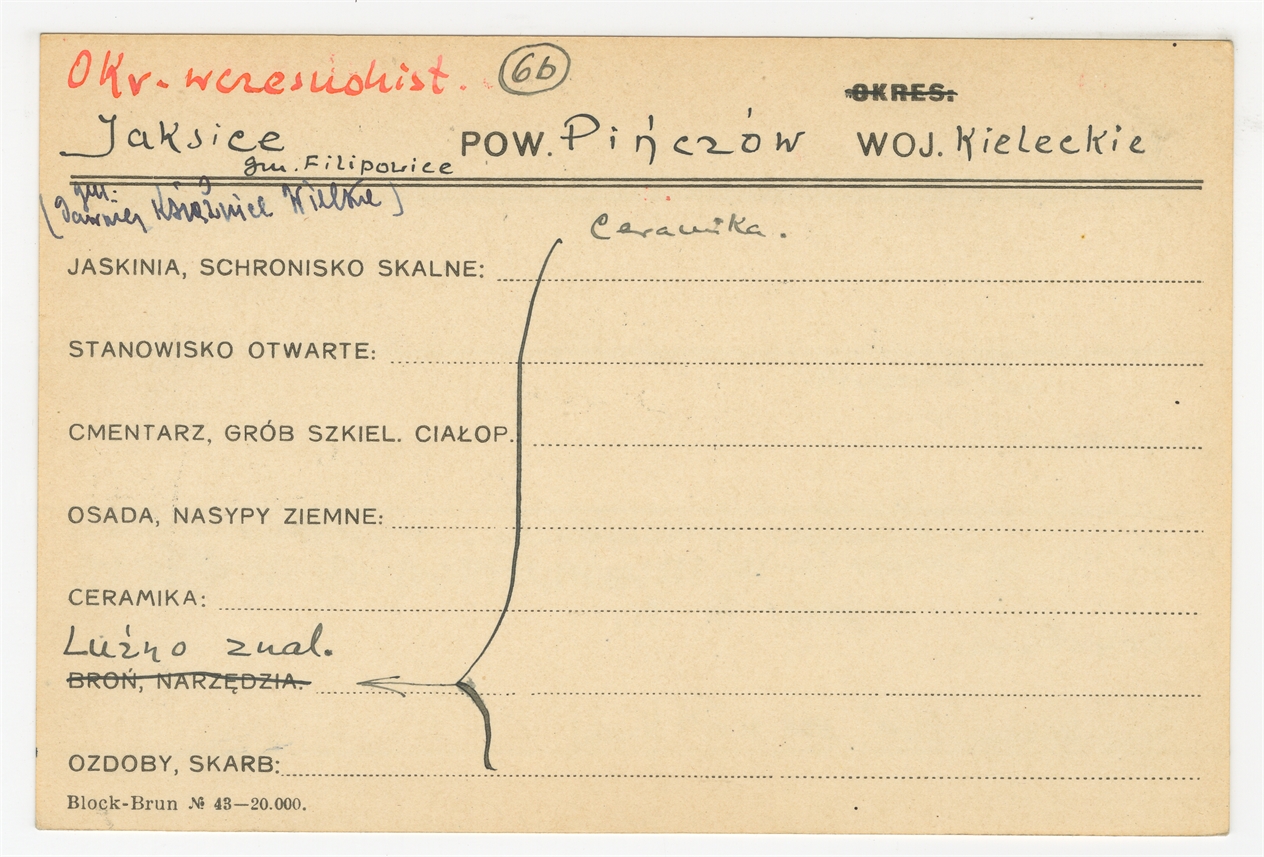 Okr. wczesnohist. 6b
OKRES:
Jaksice POW. Pińczów WOJ. Kieleckie
gm. Filipowice
gm.
(Dawniej Książnice Wielkie)
Ceramika.
JASKINIA, SCHRONISKO SKALNE:
STANOWISKO OTWARTE:
CMENTARZ, GRÓB SZKIEL. CIAŁOP.
OSADA, NASYPY ZIEMNE:
CERAMIKA:
Luźno znal.
BROŃ, NARZĘDZIA.
OZDOBY, SKARB:
Block-Brun № 43—20.000.